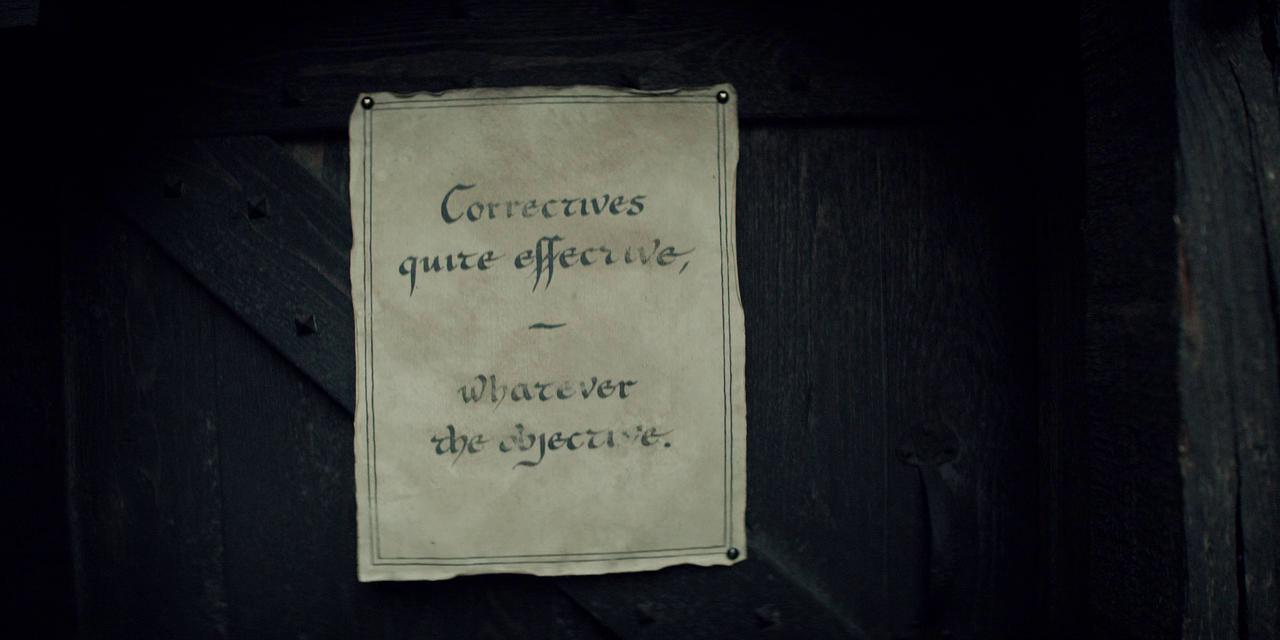 Correctives
quite effective,
–
whatever
the objective.